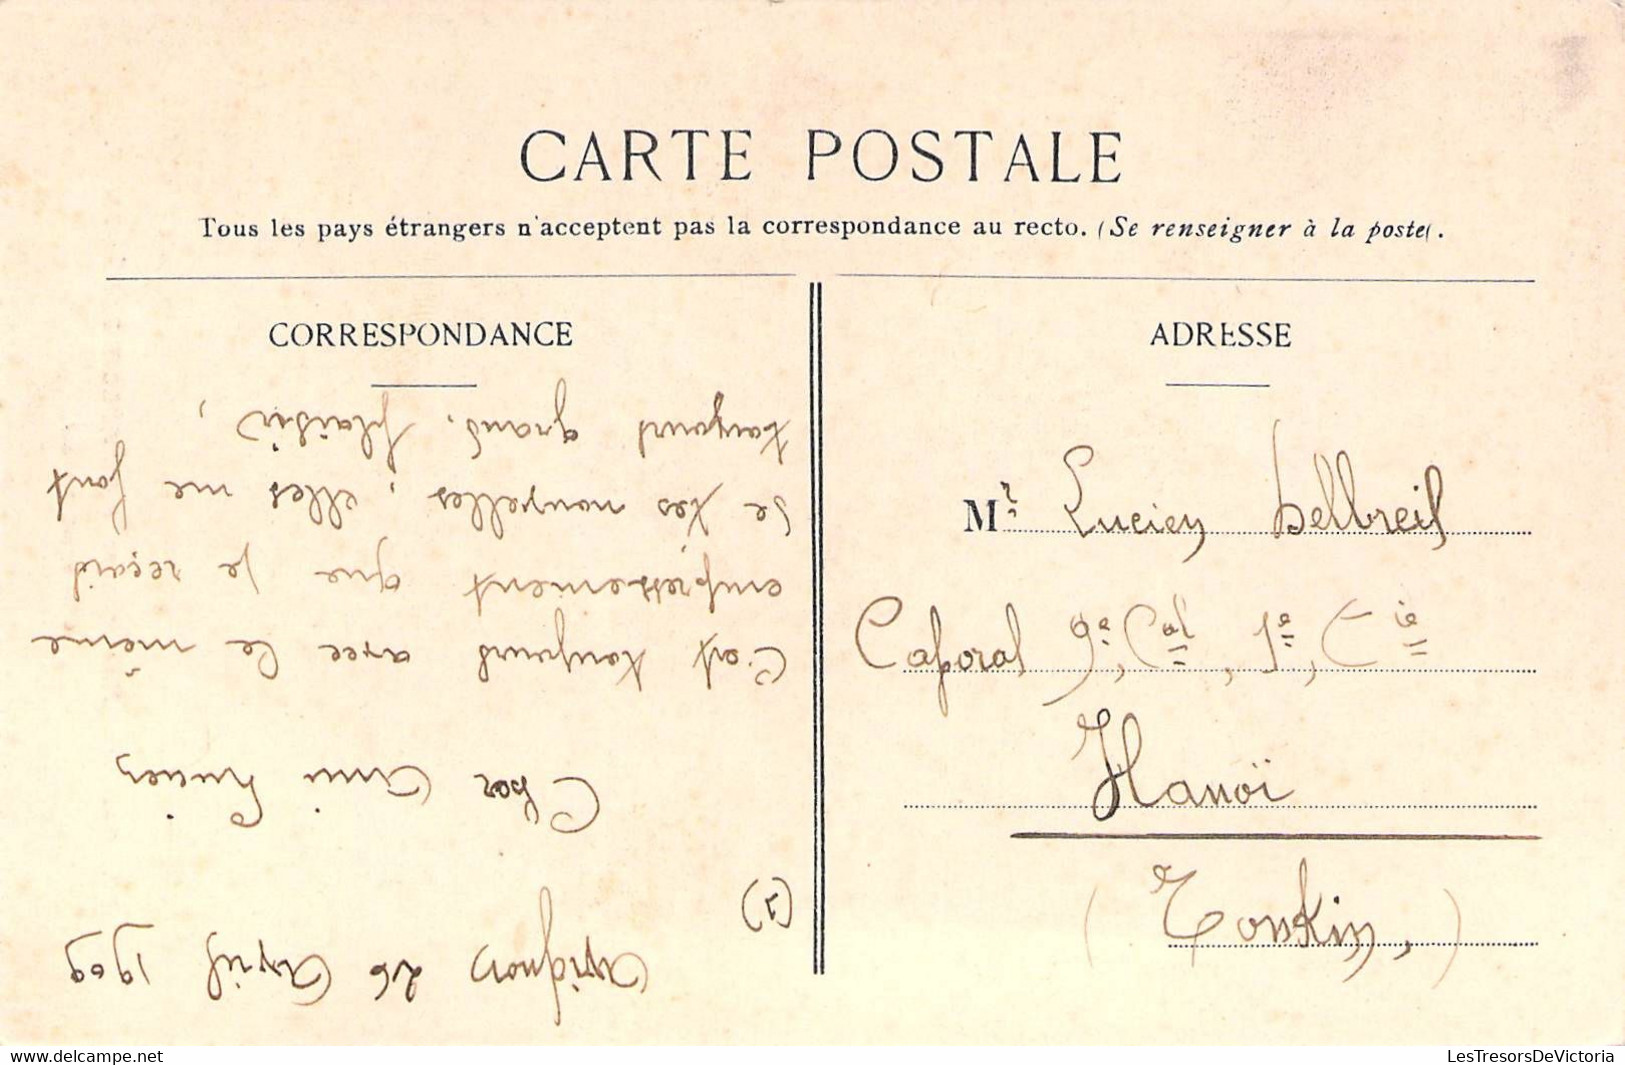 CARTE POSTALE
Tous les pays étrangers n'acceptent pas la correspondance au recto. (Se renseigner à la poste(.
CORRESPONDANCE
Avignon 26 Avril 1909
(1)
Cher Ami Lucien
C'est toujours avec le même
empressement que je reçois
de tes nouvelles, elles me font
toujours grand. plaisir,
ADRESSE
Mr Lucien Delbreil
Caporal 9e, Cal, 1e, Cie
Hanoï
(Tonkin,)
LesTresorsDeVictoria